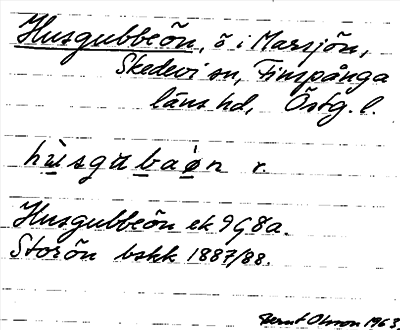 Husgubbeön, ö i Marsjön,
Skedevi sn, Finspånga
läns hd, Östg. l.
hùsgubaòn r.
Husgubbeön ek 9G8a.
Storön bskk 1887/88.
Bernt Olsson 1963.